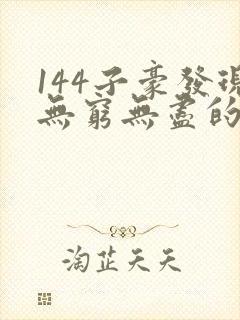 144子豪發現
無窮無盡的
淘芷天天